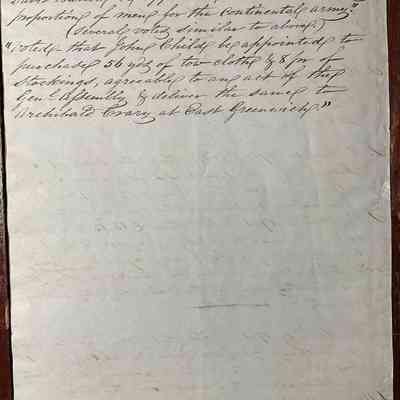 proportion of men for the Continental army."
(several votes similar to above.)
"voted that John Child be appointed to
purchase 56 yds of tow cloth & 8 pr of
stockings, agreeably to an act of the
Genl Assembly & deliver the same to
Archibald Crary at East Greenwich."